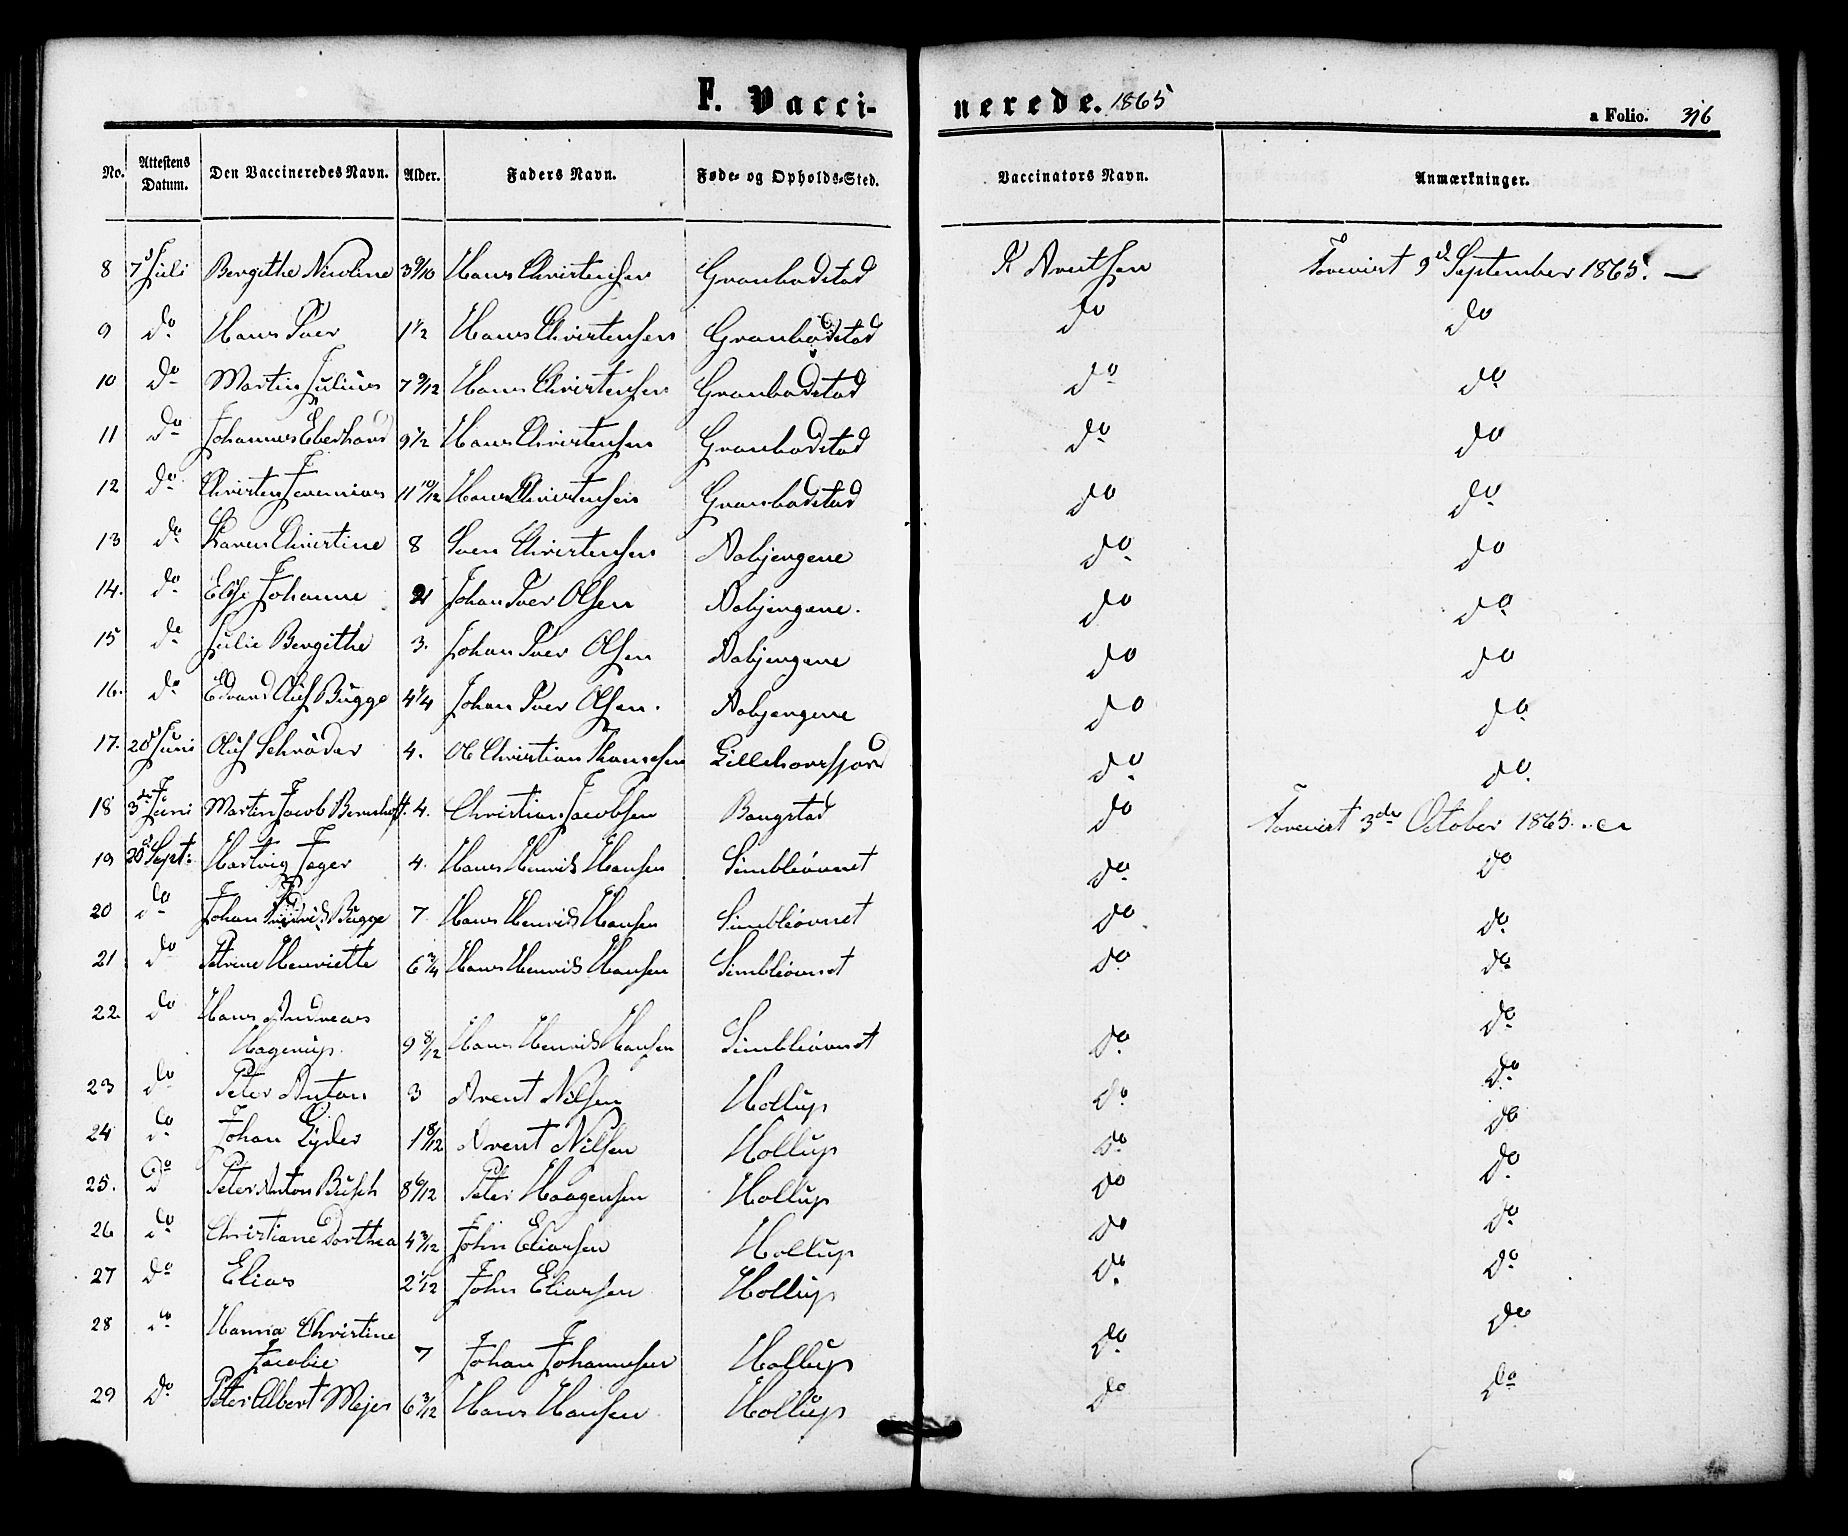 F. Vacci-
nerede. 1865
a Folio. 316
No. Attestens Datum. Den Vaccineredes Navn. Alder. Faders Navn. Føde- og Opholds-Sted. Vaccinators Navn. Anmærkninger.
8 7d Juli Bergithe Nicoline 3 9/10 Hans Christensen Granbostad K Arentsen Foreviist 9d September 1865. —
9 do Hans Iver 1 1/2 Hans Christensen Granbostad do do
10 do Martin Julius 7 9/12 Hans Christensen Granbostad do do
11 do Johannes Eberhard 9 1/2 Hans Christensen Granbostad do do
12 do Christen Jeremias 11 10/12 Hans Christensen Granbostad do do
13 do Karen Christine 8 Sven Christensen Aabjergene do do
14. do Elise Johanne 2 Johan Iver Olsen Aabjergene. do do
15 do Julie Bergithe 3. Johan Iver Olsen Aabjergene do do
16. do Edvard Oluf Bugge 4 1/4 Johan Iver Olsen. Aabjergene do do
17. 20d Juni Oluf Schrøder 4. Ol Christian Lillehorsfjord do do.
18 3de Juni Martin Jacob 4. Christian Jacobsen Bangstad do Foreviist 3die October 1865.
19 30d Sept: Hartvig Jæger 4. Hans Henrik Hansen Simbleøvnet do do
20 do Johan Bugge 7. Hans Henrik Hansen Simbleøvnet do. do
21 do Petrine Henriette 6 3/4 Hans Henrik Hansen Simbleøvnet do do
22. do Hans Andreas
Hagerup. 9 8/12 Hans Henrik Hansen Simbleøvnet do do
23 do Peter Anton 3 Arent Nilsen Hollup do do
24 do Johan Lyder 1 8/12 Arent Nilsen Hollup do do
25. do Peter Anton Busch 8 6/12 Peter Haagensen Hollup do do
26 do Christiane Dorthea 4 3/12 John Eliassen Hollup do do
27 do Elias 2 1/12 John Eliassen Hollup do do
28 do Hanna Christine
Jacobie 7 Johan Johannesen Hollup do do
29 do Peter Albert Mejer 6 3/12 Hans Hansen Hollup do do